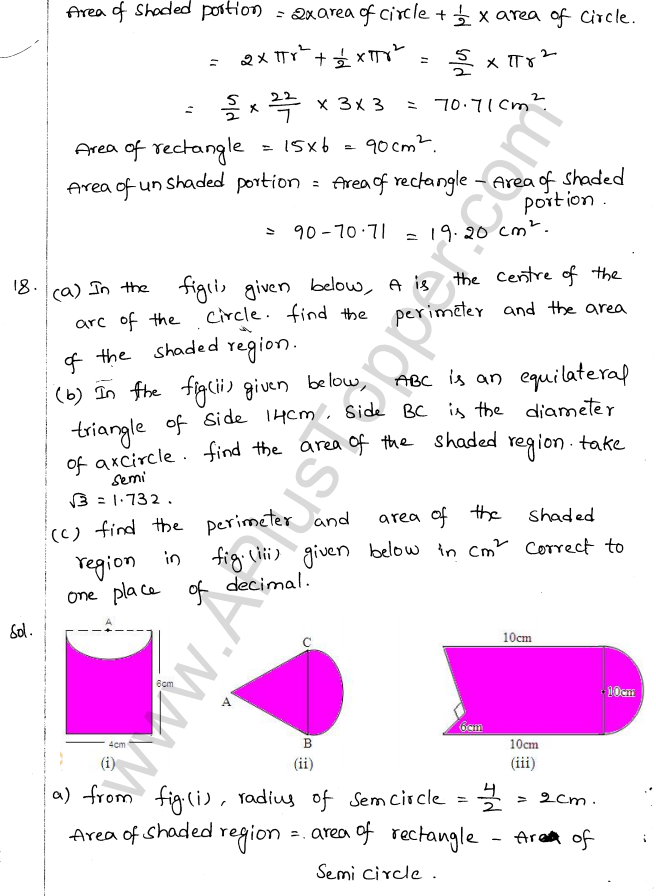 Area of shaded portion = 2×area of circle + 1/2 × area of circle.
= 2×πr² + 1/2 × πr² = 5/2 × πr²
= 5/2 × 22/7 × 3×3 = 70.71 cm².
Area of rectangle = 15×6 = 90 cm².
Area of unshaded portion = Area of rectangle - Area of shaded
portion.
= 90-70.71 = 19.20 cm².
18. (a) In the fig(i) given below, A is the centre of the
arc of the circle. find the perimeter and the area
of the shaded region.
(b) In the fig(ii) given below, ABC is an equilateral
triangle of side 14cm. side BC is the diameter
of a semi circle. find the area of the shaded region. take
√3 = 1.732.
(c) find the perimeter and area of the shaded
region in fig.(iii) given below in cm² correct to
one place of decimal.
Sol.
A
6cm
4cm
(i)
C
A
B
(ii)
10cm
10cm
6cm
10cm
(iii)
a) from fig.(i), radius of semcircle = 4/2 = 2cm.
Area of shaded region = area of rectangle - Area of
Semi circle.
www.APlusTopper.com